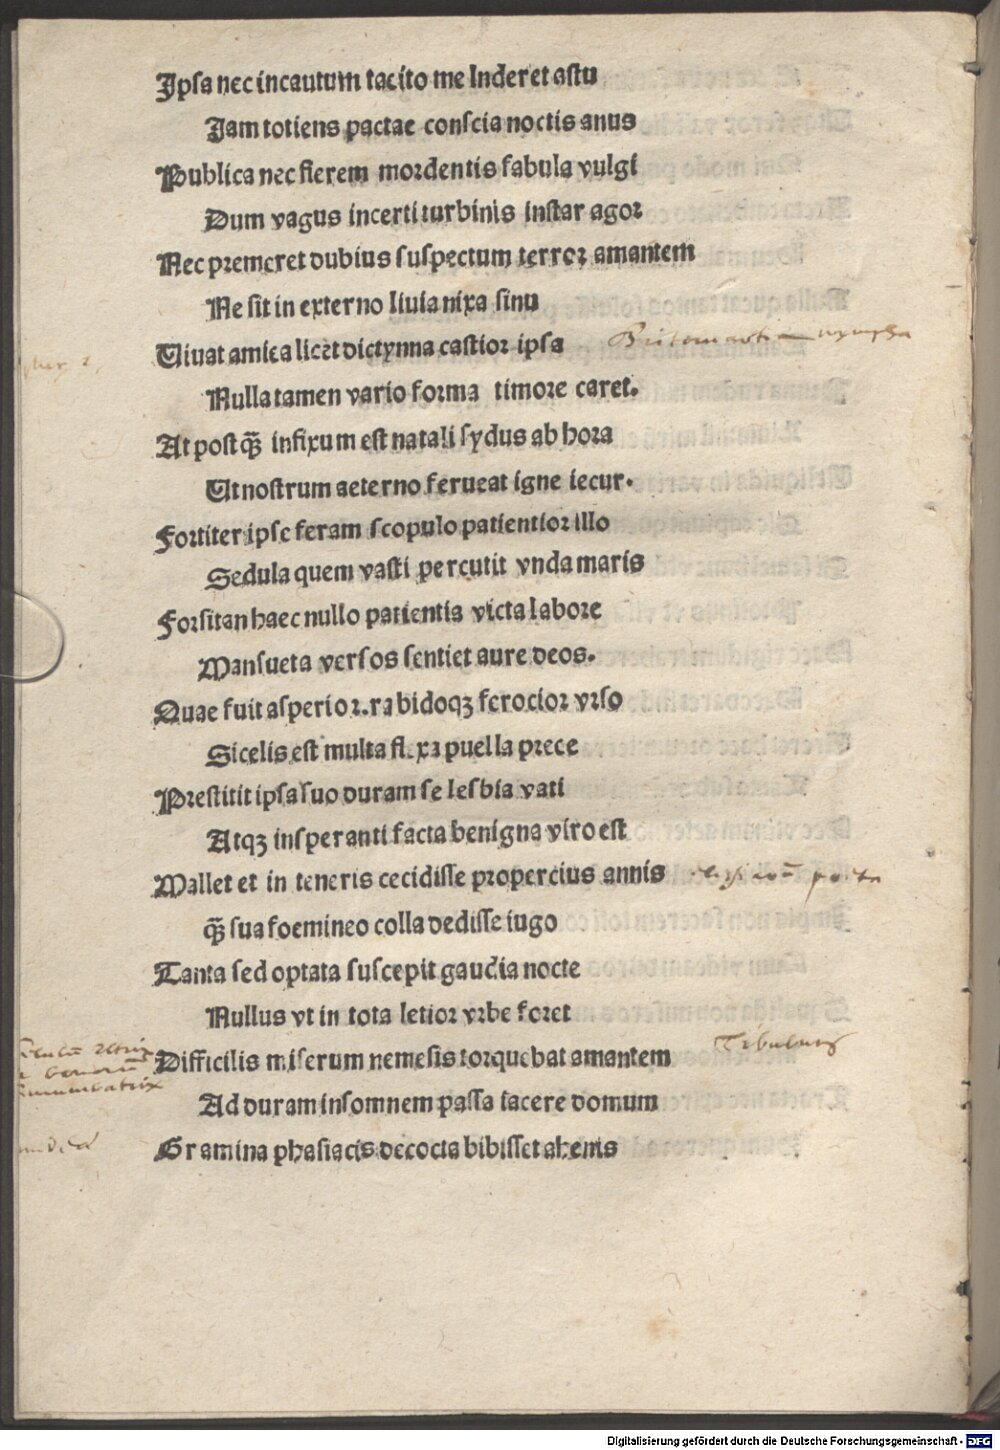 Ipsa nec incautum tacito me lnderet astu
Jam totiens pactae conscia noctis anus
Publica nec fierem mordentis fabula vulgi
Dum vagus incerti turbinis instar agor
Nec premeret dubius suspectum terror amantem
Ne sit in externo liuia nixa sinu
Uiuat amica licet dictynna castior ipsa
nympha
Nulla tamen vario forma timore caret.
At postq̃ infixum est natali sydus ab hora
Ut nostrum aeterno ferueat igne iecur.
Fortiter ipse feram scopulo patientior illo
Sedula quem vasti percutit vnda maris
Forsitan haec nullo patientia victa labore
Mansueta versos sentiet aure deos.
Quae fuit asperior. rabidoqꝫ ferocior vrso
Sicelis est multa flexa puella prece
Prestitit ipsa suo duram se lesbia vati
Atqꝫ insperanti facta benigna viro est
Mallet et in teneris cecidisse propercius annis
poeta
q̃ sua foemineo colla dedisse iugo
Tanta sed optata suscepit gaudia nocte
Nullus vt in tota letior vrbe foret
Difficilis miserum nemesis torquebat amantem
Tibulus
Ad duram insomnem passa iacere domum
Gramina phasiacis decocta bibisset ahenis
Digitalisierung gefördert durch die Deutsche Forschungsgemeinschaft - DFG